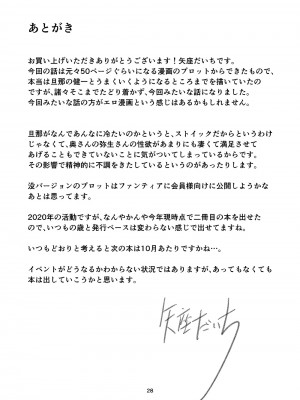 あとがき
お買い上げいただきありがとうございます！矢座だいちです。
今回の話は元々50ページぐらいになる漫画のプロットからできたもので、
本当は旦那の健一とうまくいくようになるところまでを描いていたの
ですが、諸々そこまでたどり着かず、今回みたいな話になりました。
今回みたい話の方がエロ漫画という感じはあるかもしれません。
旦那がなんであんなに冷たいのかというと、ストイックだからというわけ
じゃなくて、奥さんの弥生さんの性欲があまりにも凄くて満足させて
あげることもできていないことに気がついてしまっているからです。
その影響で精神的に不調をきたしているというのがあったりします。
没バージョンのプロットはファンティアに会員様向けに公開しようかな
あとは思ってます。
2020年の活動ですが、なんやかんや今年現時点で二冊目の本を出せた
ので、いつもの歳と発行ペースは変わらない感じで出せてますね。
いつもどおりと考えると次の本は10月あたりですかね…。
イベントがどうなるかわからない状況ではありますが、あってもなくても
本は出していこうかと思います。
矢座だいち
28